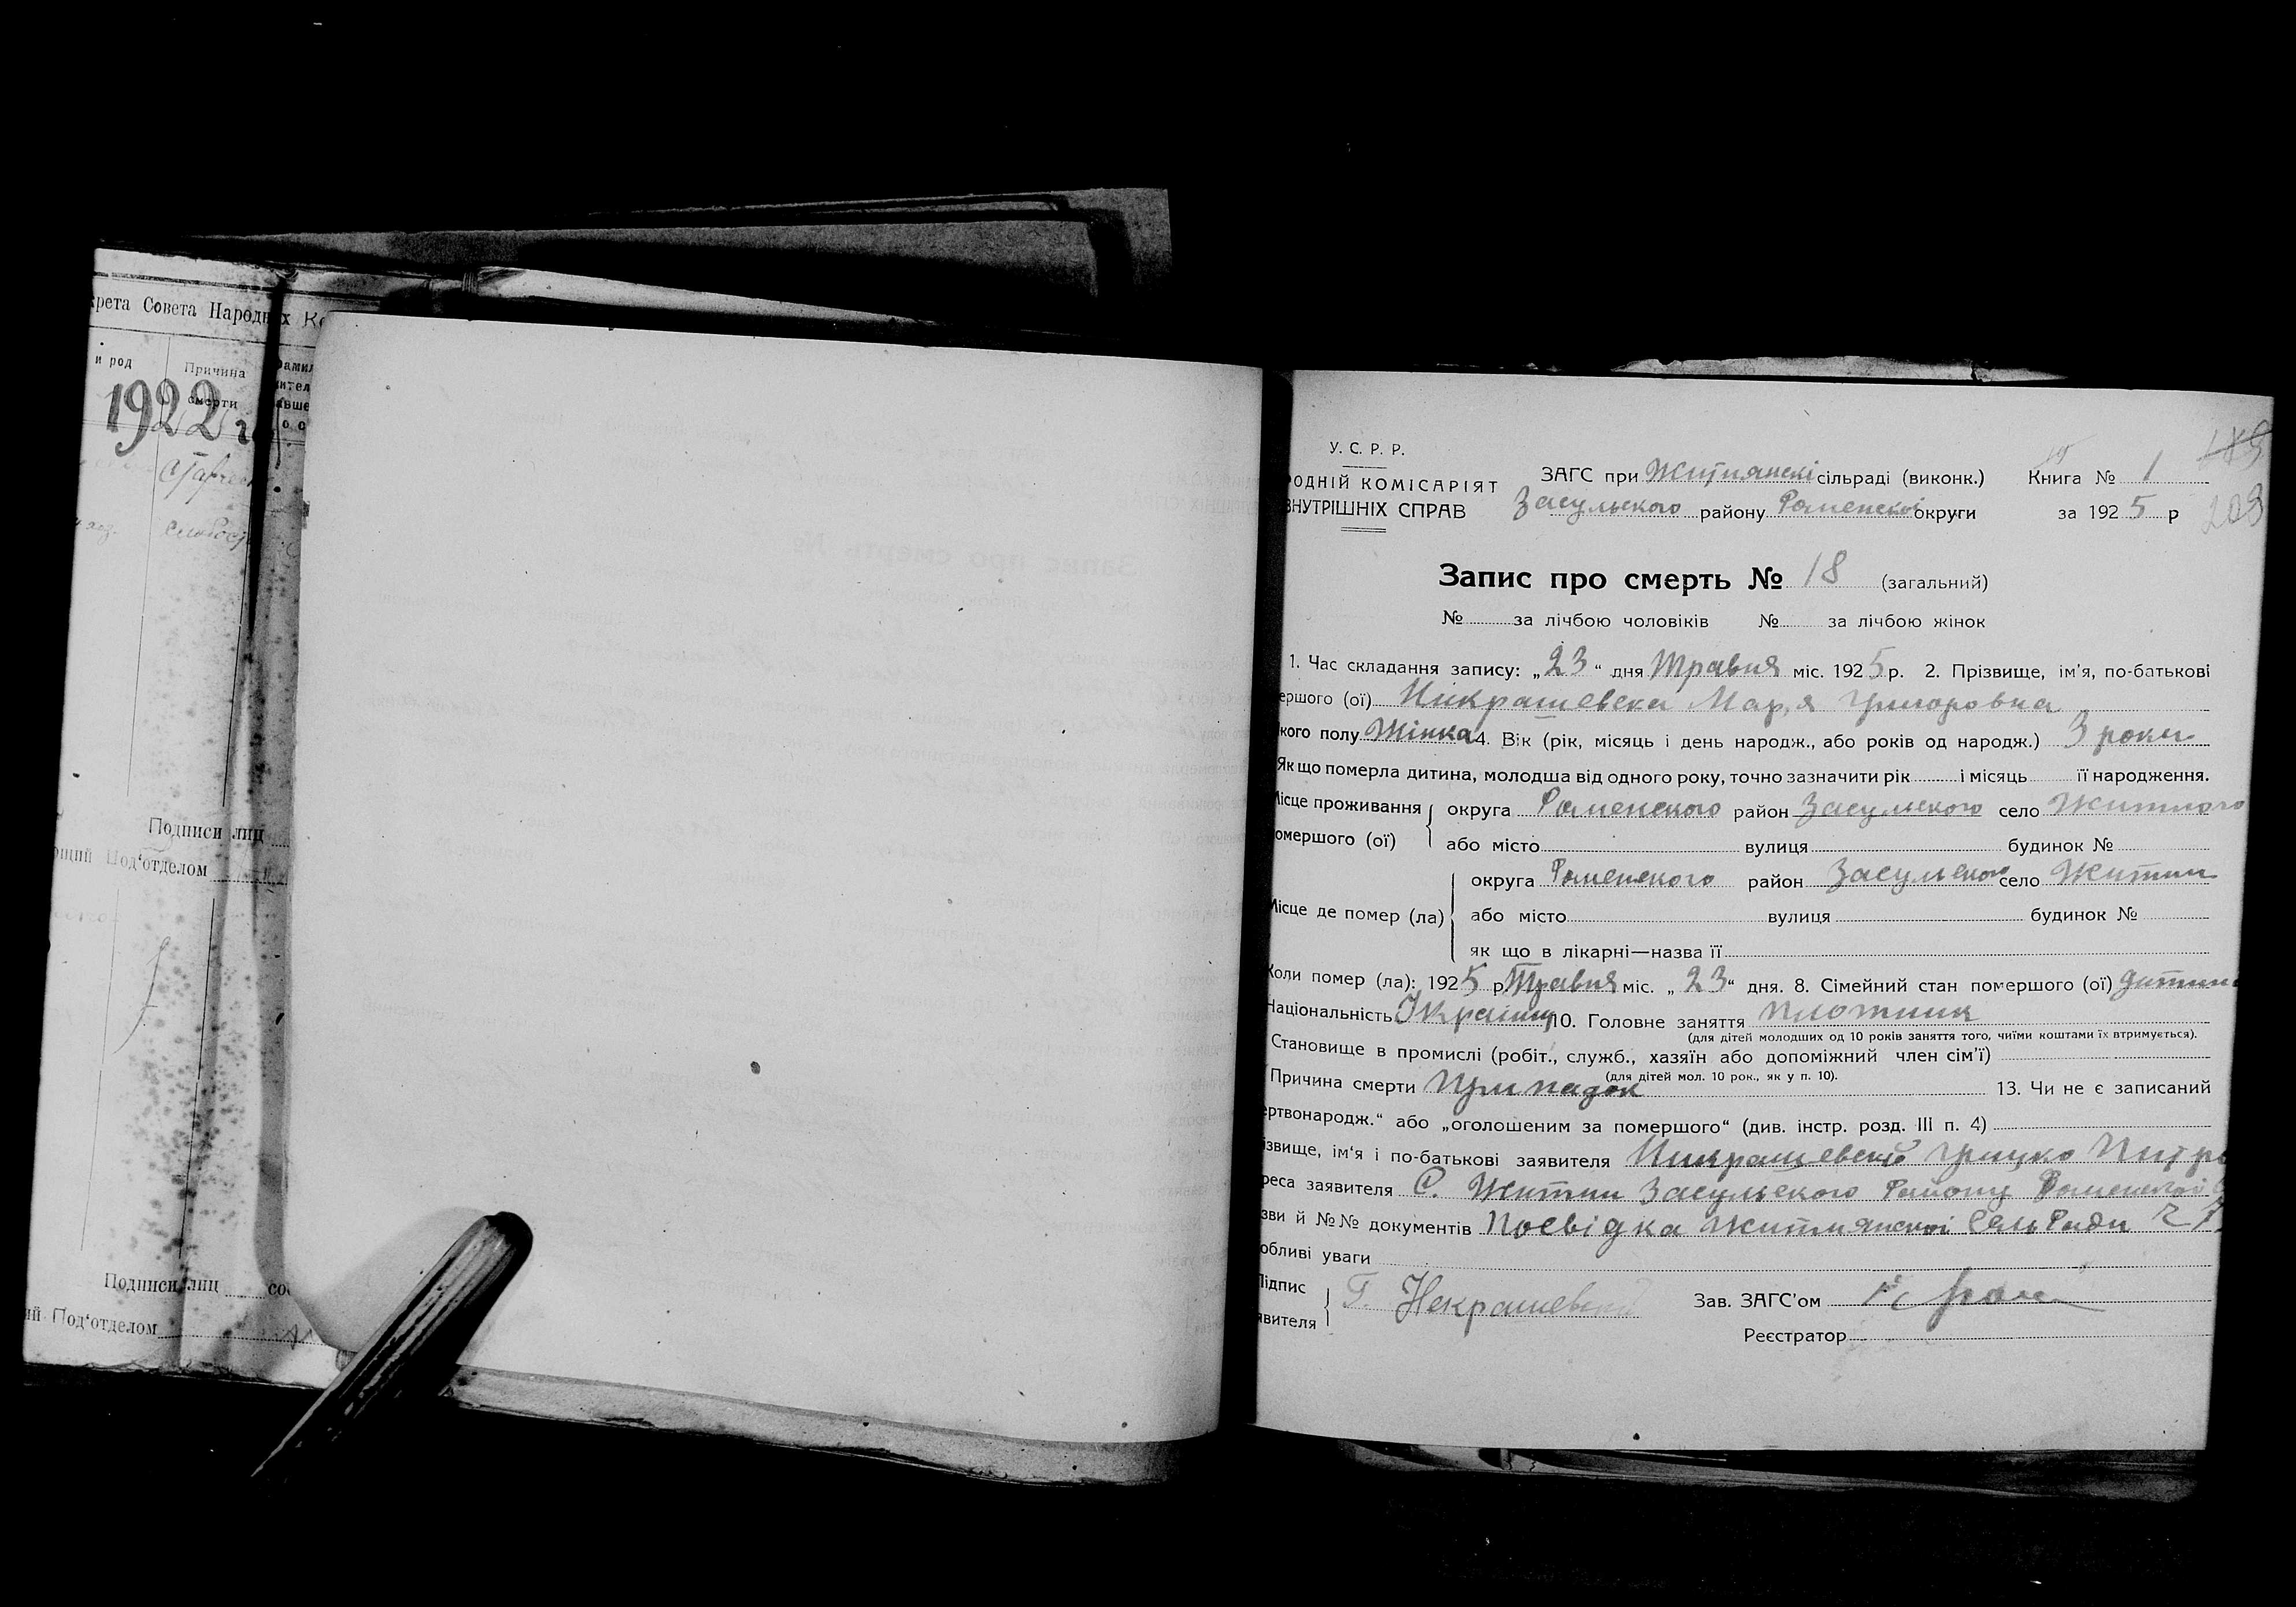 крета Совета Народных Ко
и род
Причина
смерти
1922 г.
Подписи лиц
ющий Под‘отделом
Подписи лиц со
ий Под‘отделом
У. С. Р. Р.
РОДНІЙ КОМІСАРІЯТ
ВНУТРІШНІХ СПРАВ
ЗАГС при Житнянскі сільраді (виконк.) Книга № 1
Засульского району Роменскої округи за 1925 р
203
Запис про смерть № 18 (загальний)
№ за лічбою чоловіків № за лічбою жінок
1. Час складання запису: „23“ дня Травня міс. 1925 р. 2. Прізвище, ім‘я, по-батькові
ершого (ої) Никрашевска Мар,я Григоровна
кого полу Жінка 4. Вік (рік, місяць і день народж., або років од народж.) 3 роки
Як що померла дитина, молодша від одного року, точно зазначити рік і місяць її народження.
Місце проживання
омершого (ої)
округа Роменского район Засульского село Житного
або місто вулиця будинок №
Місце де помер (ла)
округа Роменского район Засульского село Житни
або місто вулиця будинок №
як що в лікарні—назва її
Коли помер (ла): 1925 р. Травня міс. „23“ дня. 8. Сімейний стан помершого (ої) дитина
Національність Украінц 10. Головне заняття плотник
(для дітей молодших од 10 років заняття того, чиїми коштами їх втримується).
Становище в промислі (робіт., служб., хазяїн або допоміжний член сім‘ї)
(для дітей мол. 10 рок., як у п. 10).
Причина смерти Припадок 13. Чи не є записаний
ертвонародж.“ або „оголошеним за помершого“ (див. інстр. розд. III п. 4)
ізвище, ім‘я і по-батькові заявителя Никрашевский Грицко Питр
реса заявителя С. Житни Засульского Району Роменскоі
зви й №№ документів Посвідка Житнянскоі СельРади
обливі уваги
Підпис
явителя
Г. Некрашевский
Зав. ЗАГС‘ом
Реєстратор